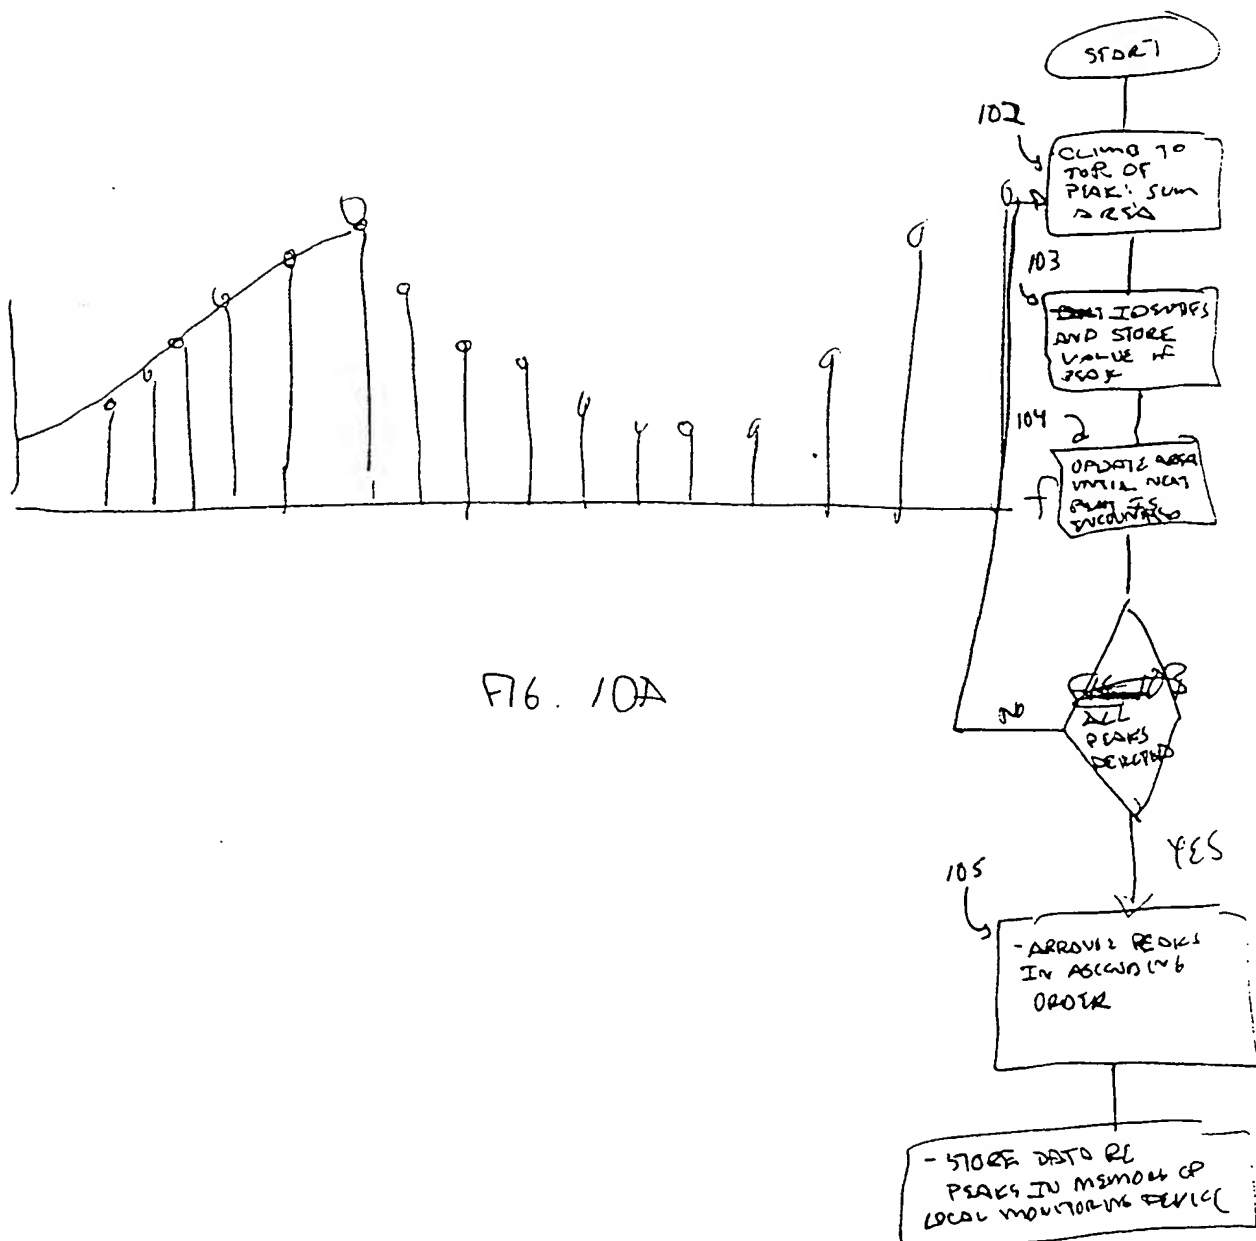 START
102
CLIMB TO
TOP OF
PEAK: SUM
AREA
103
IDENTIFS
AND STORE
VALUE OF
PEAK
104
UPDATE AREA
UNTIL NEXT
PEAK IS
ENCOUNTRED
f
ALL
PEAKS
DETECTED
NO
YES
FIG. 10A
105
- ARRANGE PEAKS
IN ASCENDING
ORDER
- STORE DATA RE
PEAKS IN MEMORY OF
LOCAL MONITORING DEVICE